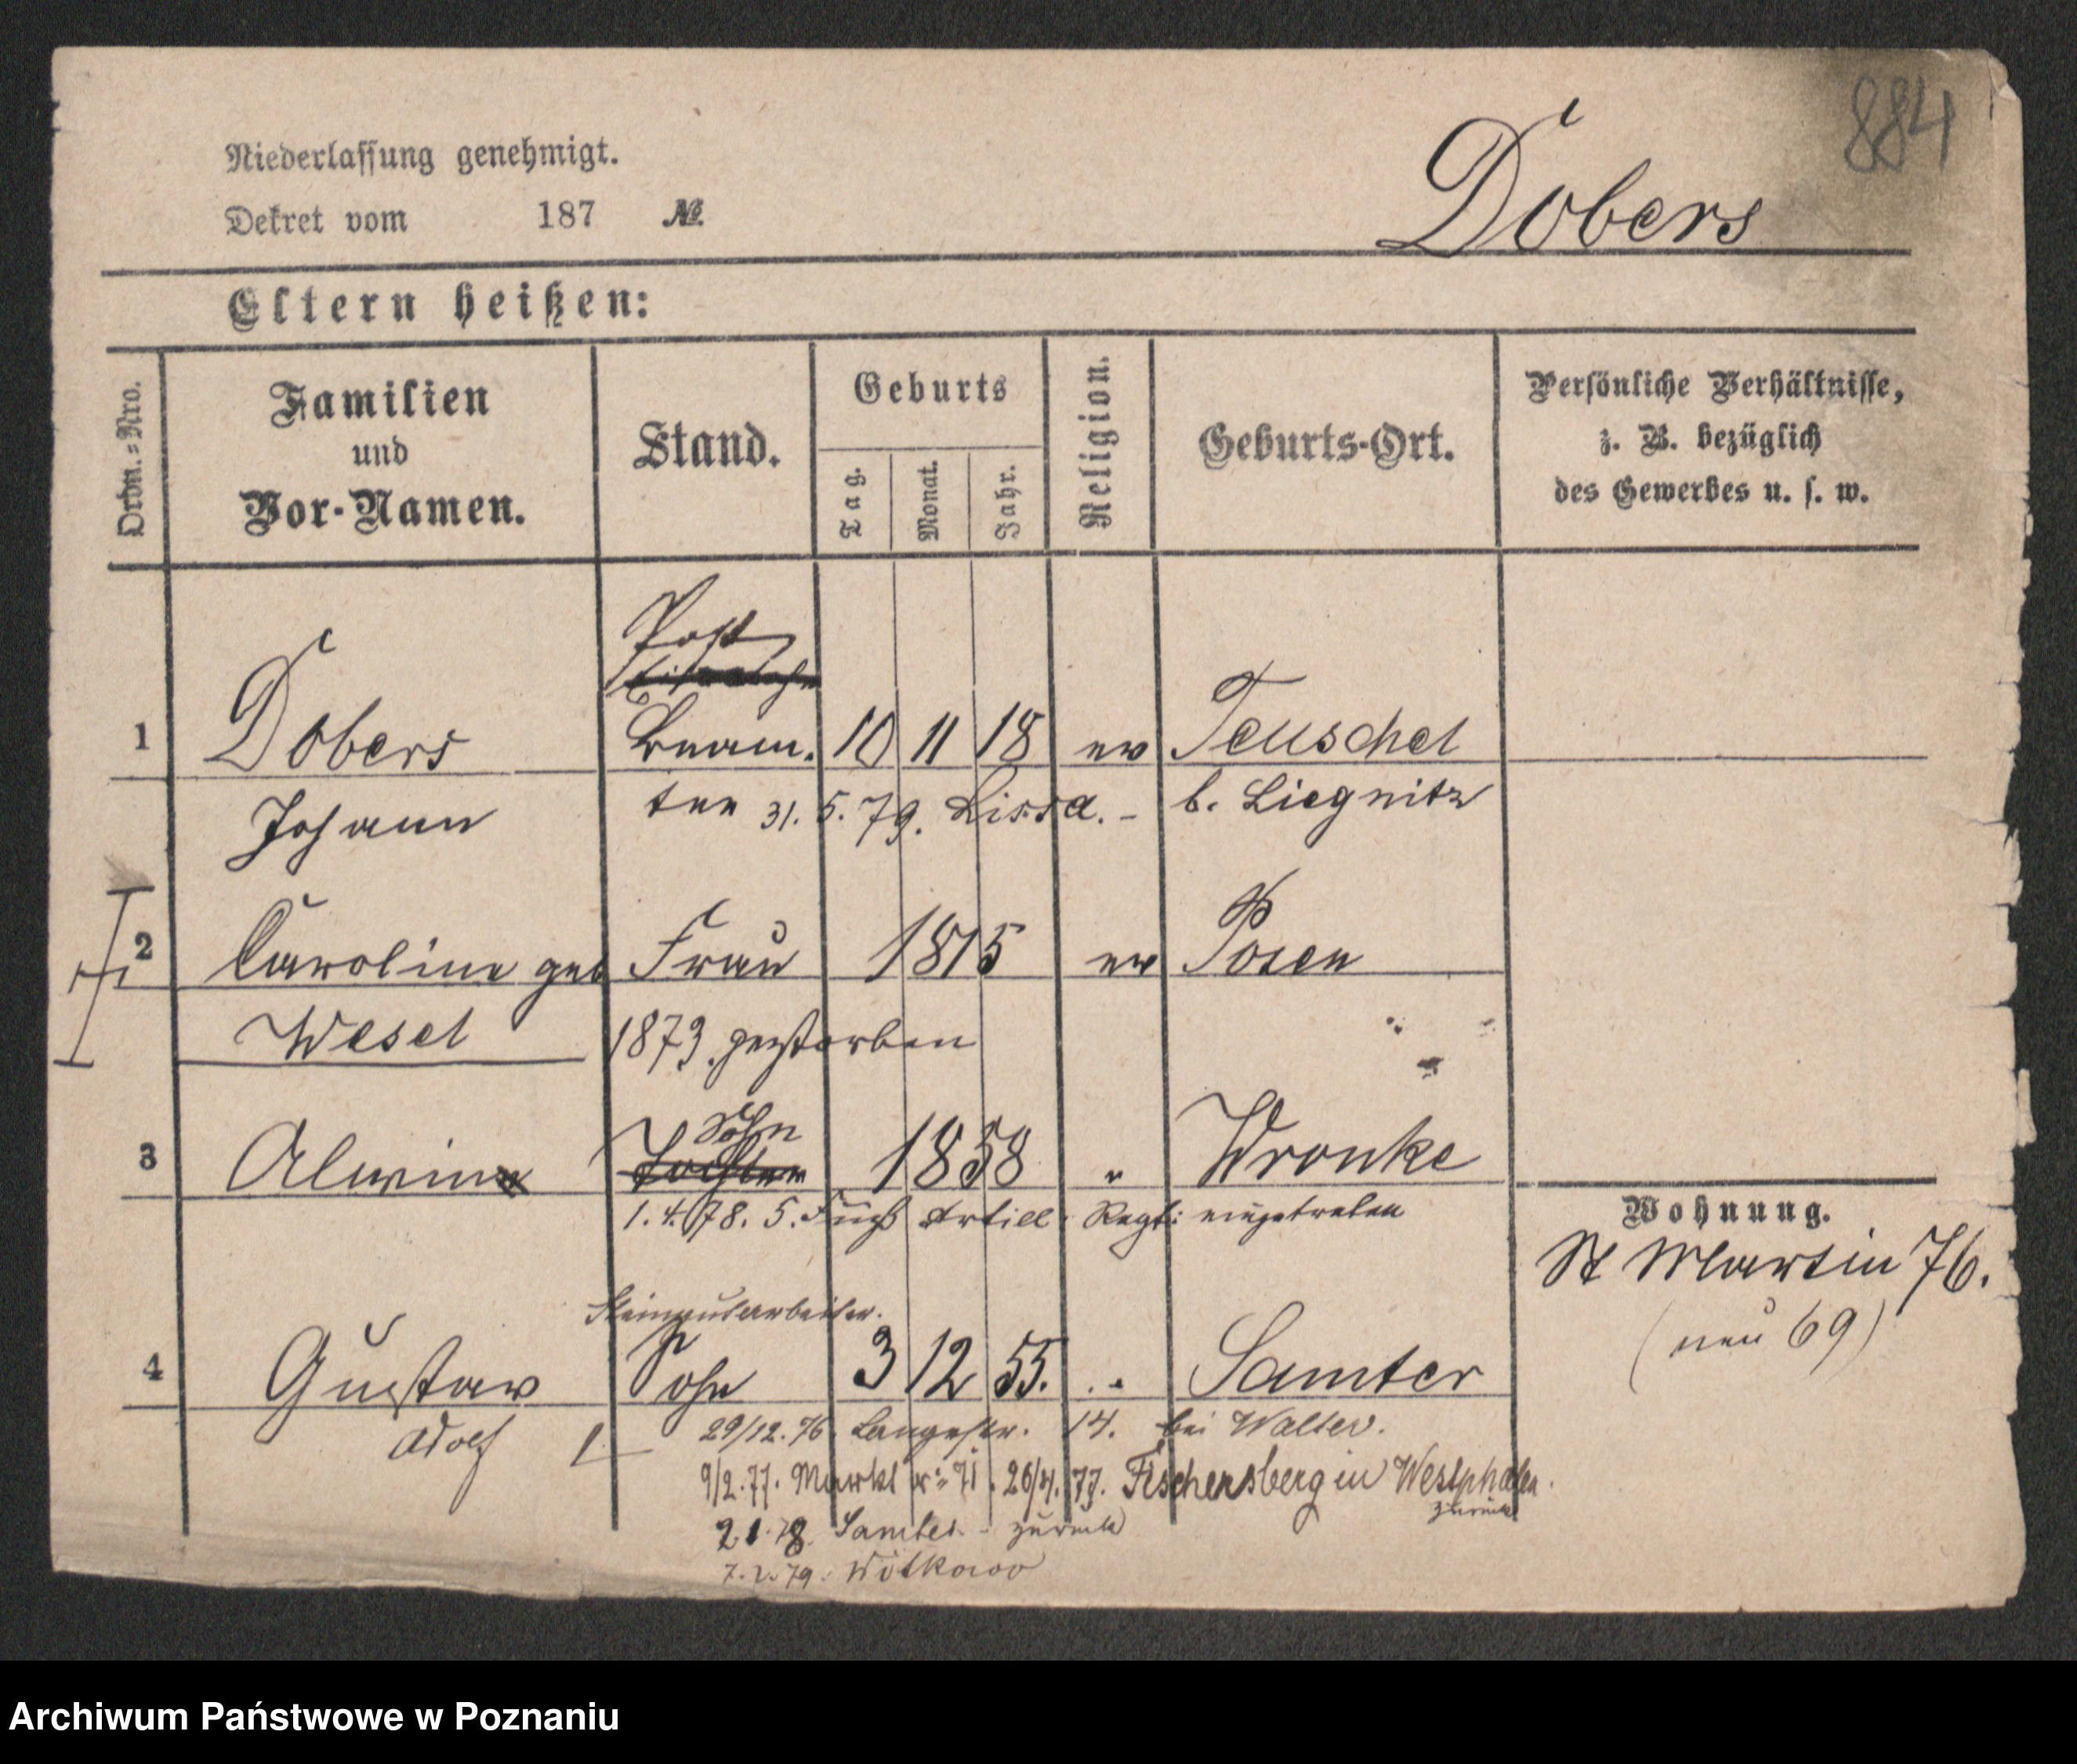 884
Niederlassung genehmigt.
Dekret vom 187 №.
Dobers
Eltern heißen:
Ordn.=Nro.
Familien
und
Vor-Namen.
Stand.
Geburts
Tag.
Monat.
Jahr.
Religion.
Geburts-Ort.
Persönliche Verhältnisse,
z. B. bezüglich
des Gewerbes u. s. w.
Post
1 Dobers Beam. 10 11 18 ev Teuschel
Johann ten 31. 5. 79. Lissa. - b. Liegnitz
2 Caroline geb Frau 1815 ev Posen
Wesel 1873 gestorben
Sohn
3 Alwin Tochter 1858 " Wronke
1. 4. 78. 5. Fuß Artill. Regt: eingetreten
Wohnung.
St Martin 76.
(neu 69)
4 Gustav Sohn 3 12 55. " Samter
Adolf
29/12. 76. Langestr. 14. bei Walter.
9/2. 77. Markt № 71. 26/4. 77. Fischersberg in Westphalen.
zurück
2. 1. 78. Samter - zurück
7. 2. 79. Witkowo
Archiwum Państwowe w Poznaniu